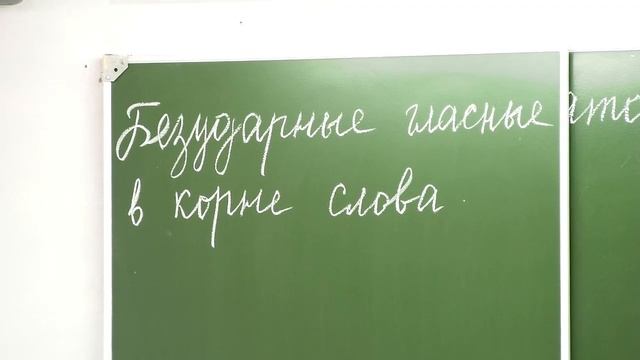 Безударные гласные
в корне слова